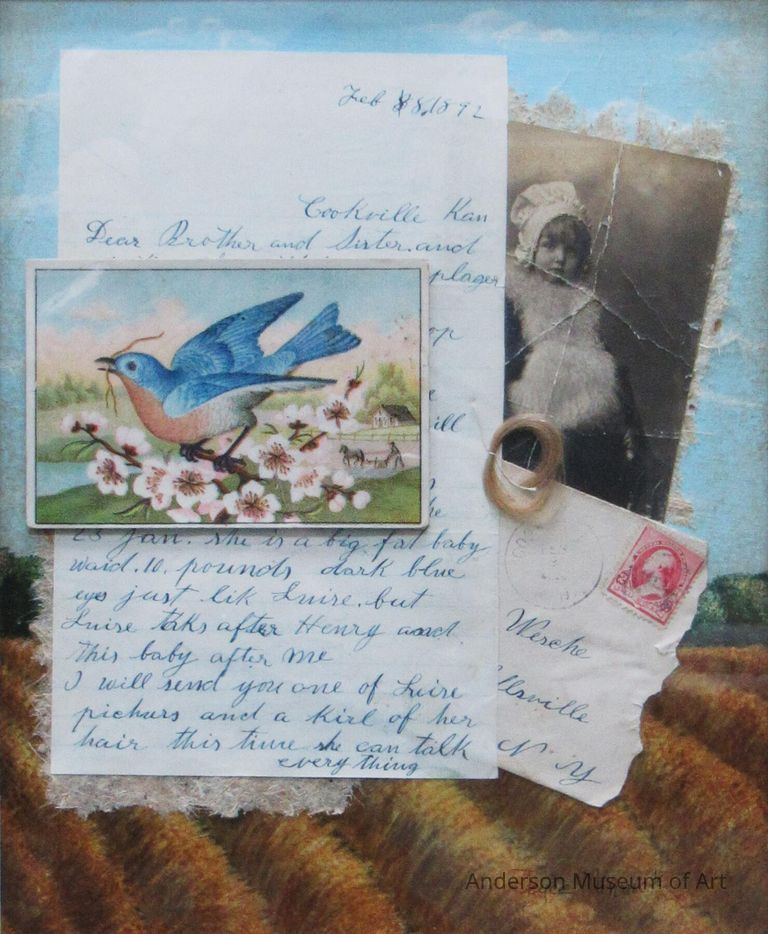 Feb 8,1892
Cookville Kan
Dear Brother and Sister.and
plager
op
ill
25 Jan. she is a big fat baby
waid.10. pounds dark blue
eys just lik Luise.but
Luise taks after Henry and
this baby after me
I will send you one of Luise
pichurs and a kirl of her
hair this time she can talk
every thing
Wesche
llsville
N Y
Anderson Museum of Art